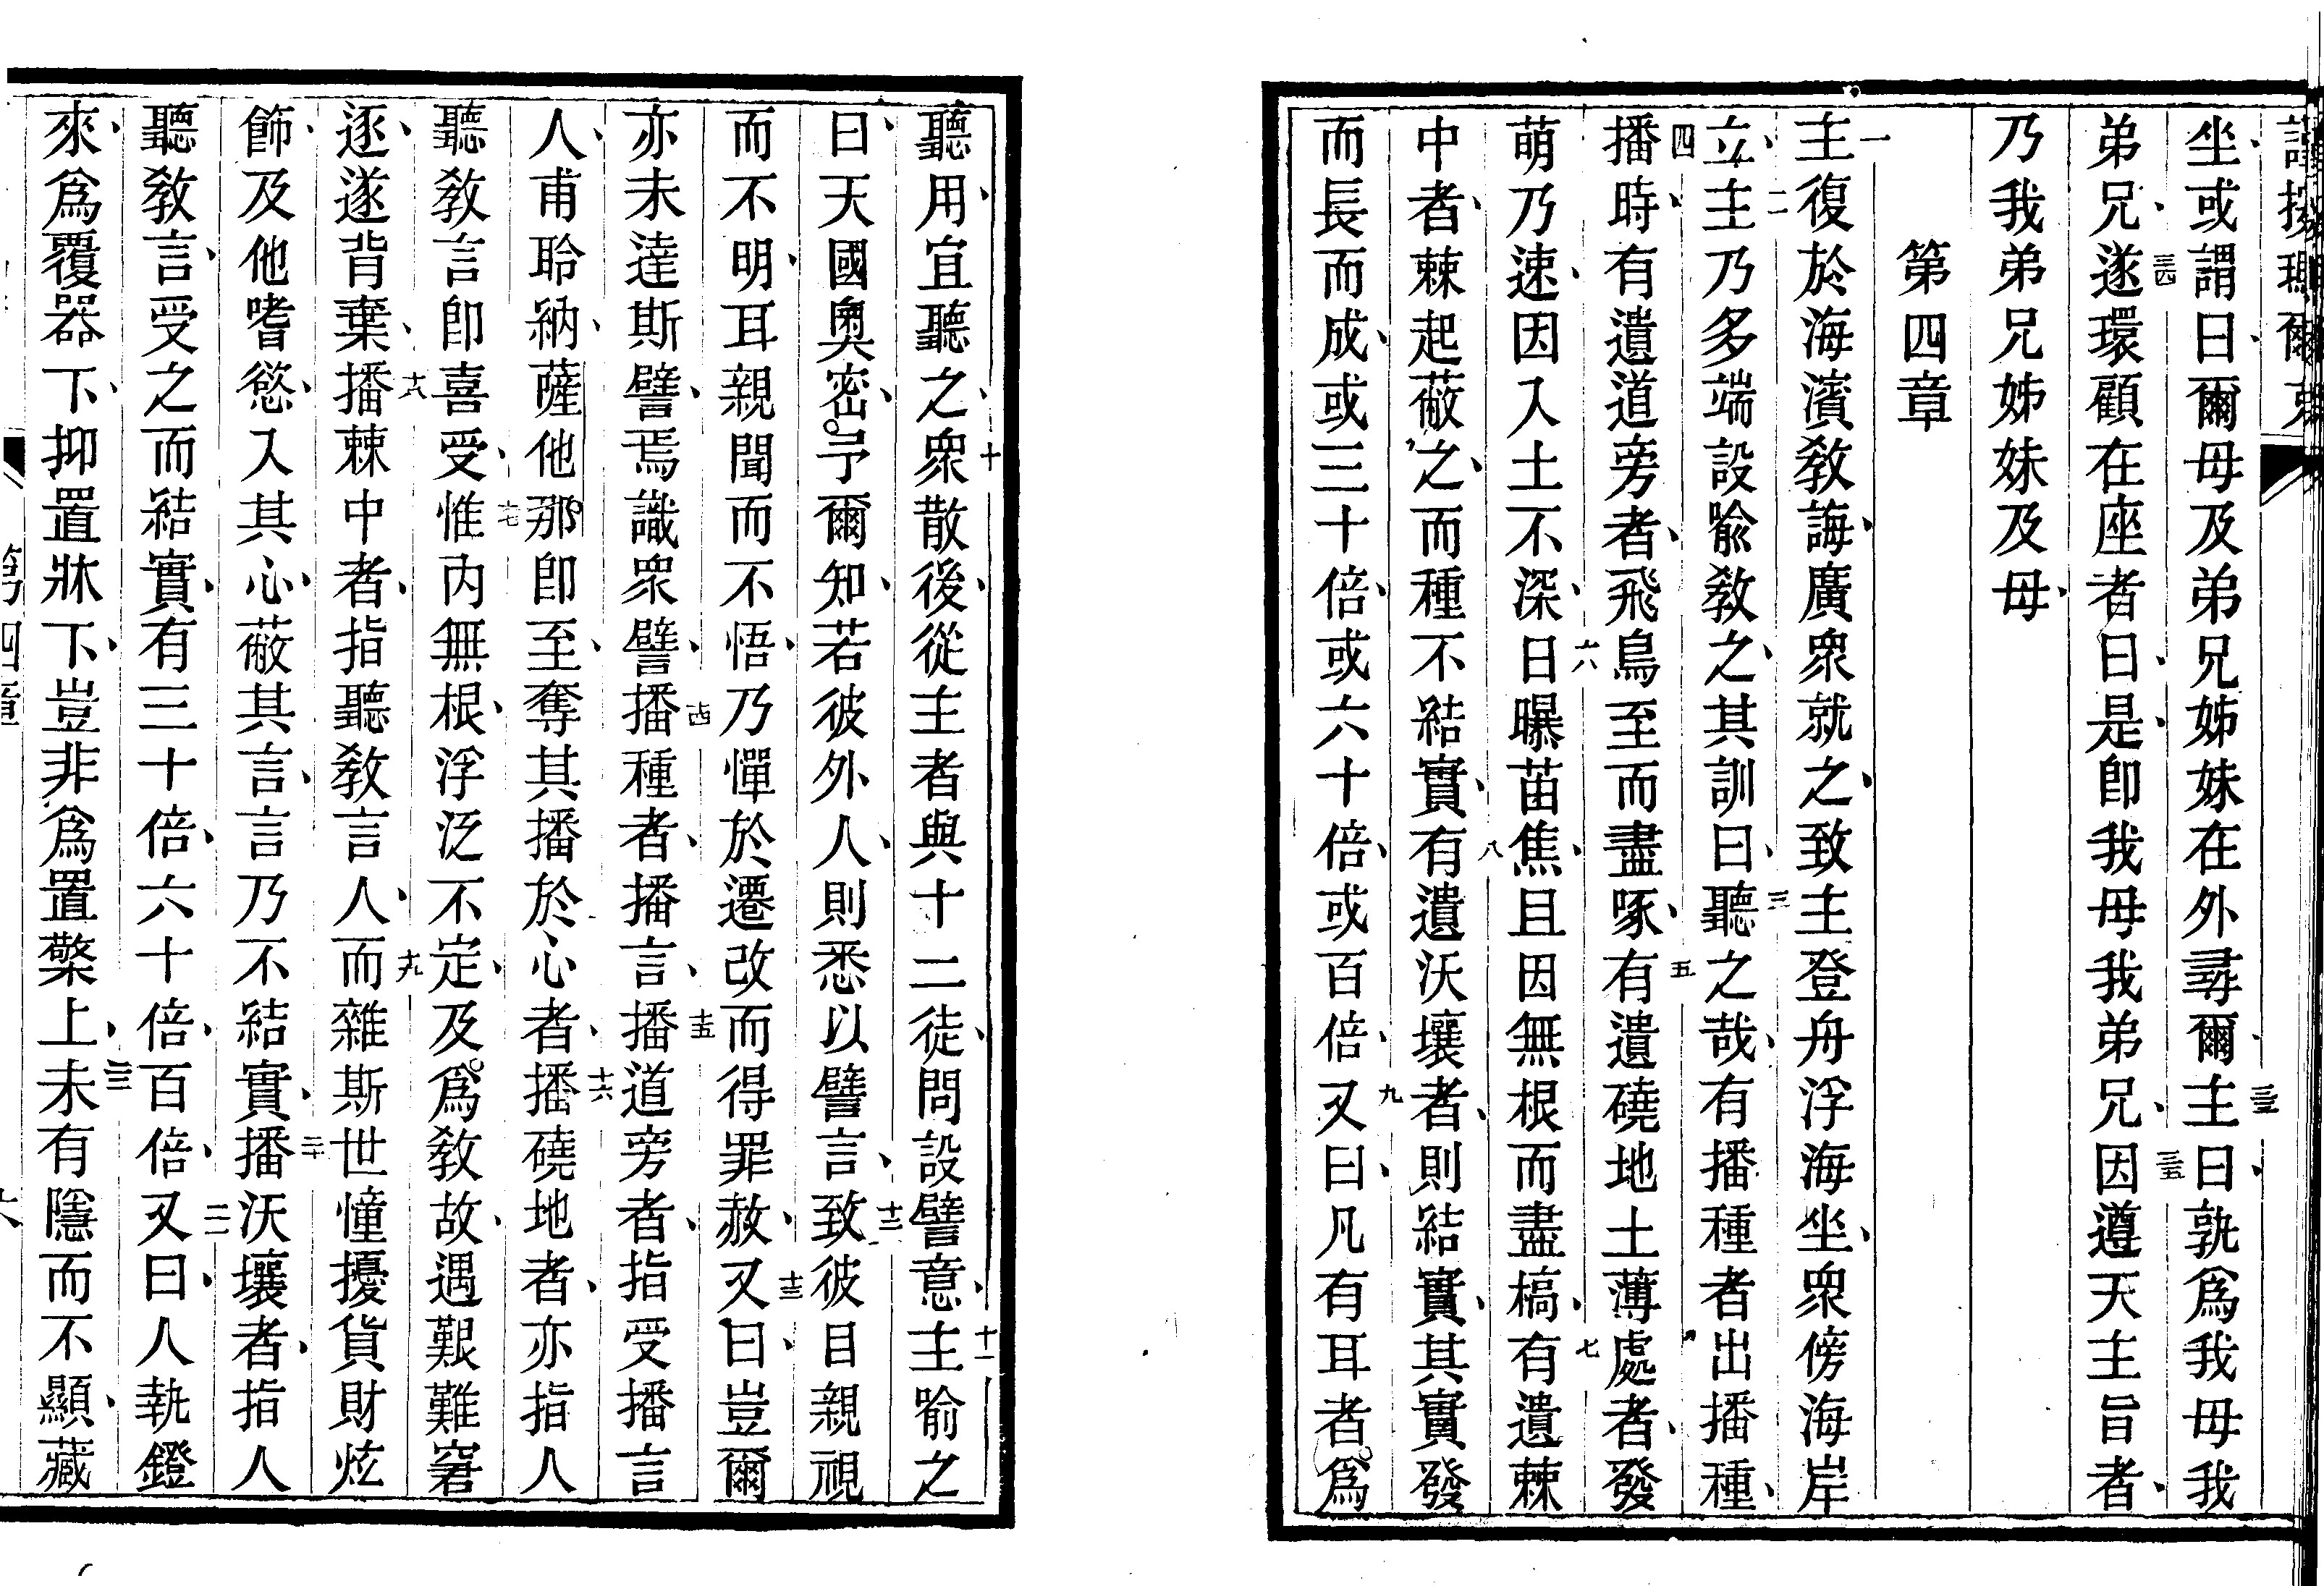 坐、或謂曰、爾母及弟兄姊妹在外尋爾、三三主曰、孰爲我母我
弟兄、三四遂環顧在座者曰、是、卽我母我弟兄、三五因遵天主旨者、
乃我弟兄姊妹及母、
第四章
一主復於海濱教誨、廣衆就之、致主登舟浮海坐、衆傍海岸
立、二主乃多端設喻教之、其訓曰、三聽之哉、有播種者出播種、
四播時、有遺道旁者、飛鳥至而盡啄、五有遺磽地土薄處者、發
萌乃速、因入土不深、六日曝苗焦、且因無根而盡槁、七有遺棘
中者、棘起蔽之、而種不結實、八有遺沃壤者、則結實、其實發
而長而成、或三十倍、或六十倍、或百倍、九又曰、凡有耳者。爲
聽用、宜聽之、十衆散後、從主者與十二徒、問設譬意、十一主喻之
曰、天國奧密。予爾知、若彼外人、則悉以譬言、十二致彼目親視
而不明、耳親聞而不悟、乃憚於遷改而得罪赦、十三又曰、豈爾
亦未達斯譬、焉識衆譬、十四播種者、播言、十五播道旁者、指受播言
人、甫聆納、薩他那。卽至、奪其播於心者、十六播磽地者、亦指人
聽教言卽喜受、十七惟內無根、浮泛不定、及。爲教故、遇艱難窘
逐、遂背棄、十八播棘中者、指聽教言人、十九而雜斯世憧擾貨財炫
飾、及他嗜慾、入其心、蔽其言、言乃不結實、二十播沃壤者、指人
聽教言、受之而結實、有三十倍、六十倍、百倍、二一又曰、人執鐙
來、爲覆器下、抑置牀下、豈非爲置檠上、二二未有隱而不顯、藏
第四章